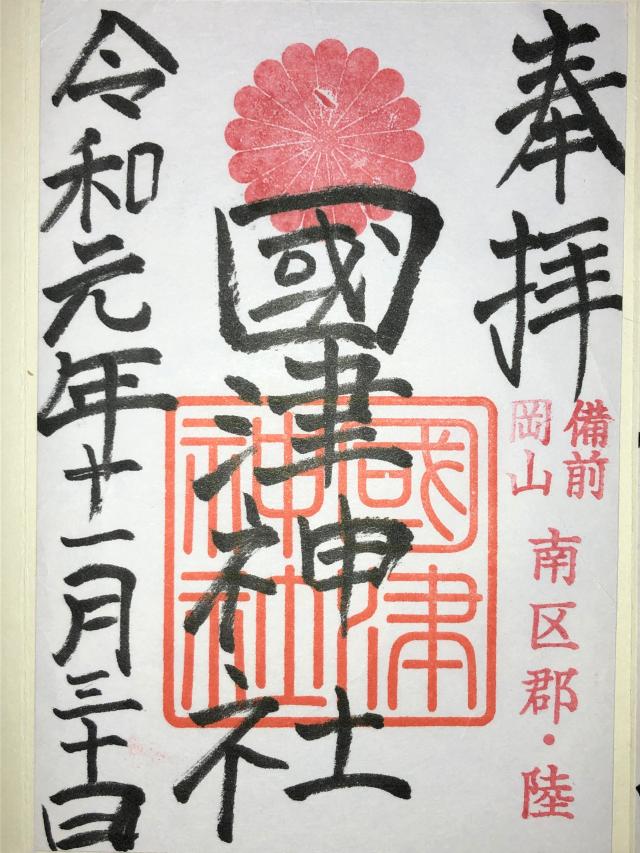 奉拝
備前
岡山
南区郡・陸
國津神社
國津
神社
令和元年十一月三十日